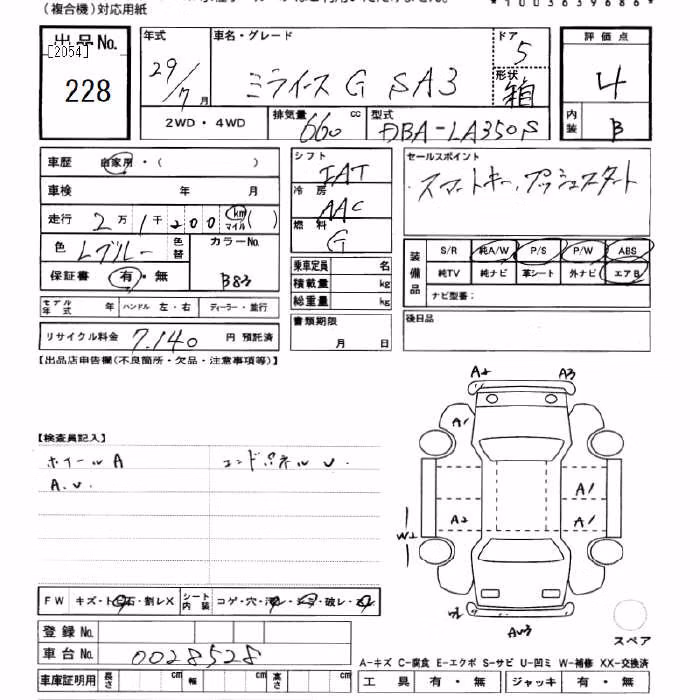 (複合機)対応用紙
*1003639686*
出品No.
[2054]
228
年式
29/7月
車名・グレード
ミライース G SA3
ドア
5
形状
箱
評価点
4
内装
B
2WD・4WD
排気量
660 cc
型式
DBA-LA350S
車歴 自家用・( )
車検 年 月
走行 2万1千200 km マイル ( )
色 Lブルー 色替
カラーNo.
B83
保証書 有・無
モデル年式 年 ハンドル 左・右 ディーラー・並行
リサイクル料金 7.140 円 預託済
シフト
IAT
冷房
AAC
燃料
G
乗車定員 名
積載量 kg
総重量 kg
書類期限
月 日
セールスポイント
スマートキー、プッシュスタート
装備品
S/R 純A/W P/S P/W ABS
純TV 純ナビ 革シート 外ナビ エアB
ナビ型番:
後日品
【出品店申告欄(不良箇所・欠品・注意事項等)】
【検査員記入】
ホイールA
A.U.
エンドパネルU.
A2 A3
A1
A1
A2 A1
W2
AU3
FW キズ・トビ石・割レX シート内装 コゲ・穴・汚レ・シミ・破レ・スレ
登録No.
車台No. 0028528
車庫証明用 長さ cm 幅 cm 高さ cm
スペア
A-キズ C-腐食 E-エクボ S-サビ U-凹ミ W-補修 XX-交換済
工具 有・無 ジャッキ 有・無